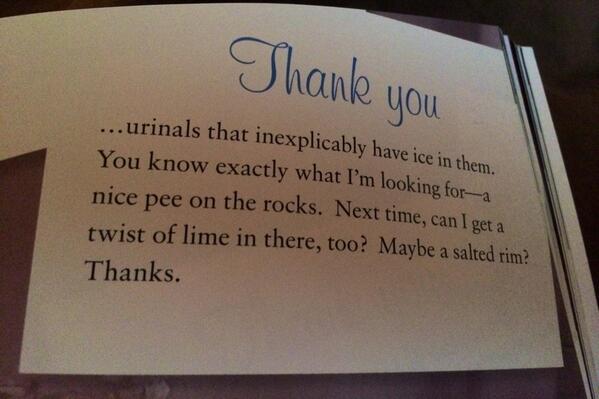 Thank you
...urinals that inexplicably have ice in them.
You know exactly what I'm looking for—a
nice pee on the rocks. Next time, can I get a
twist of lime in there, too? Maybe a salted rim?
Thanks.